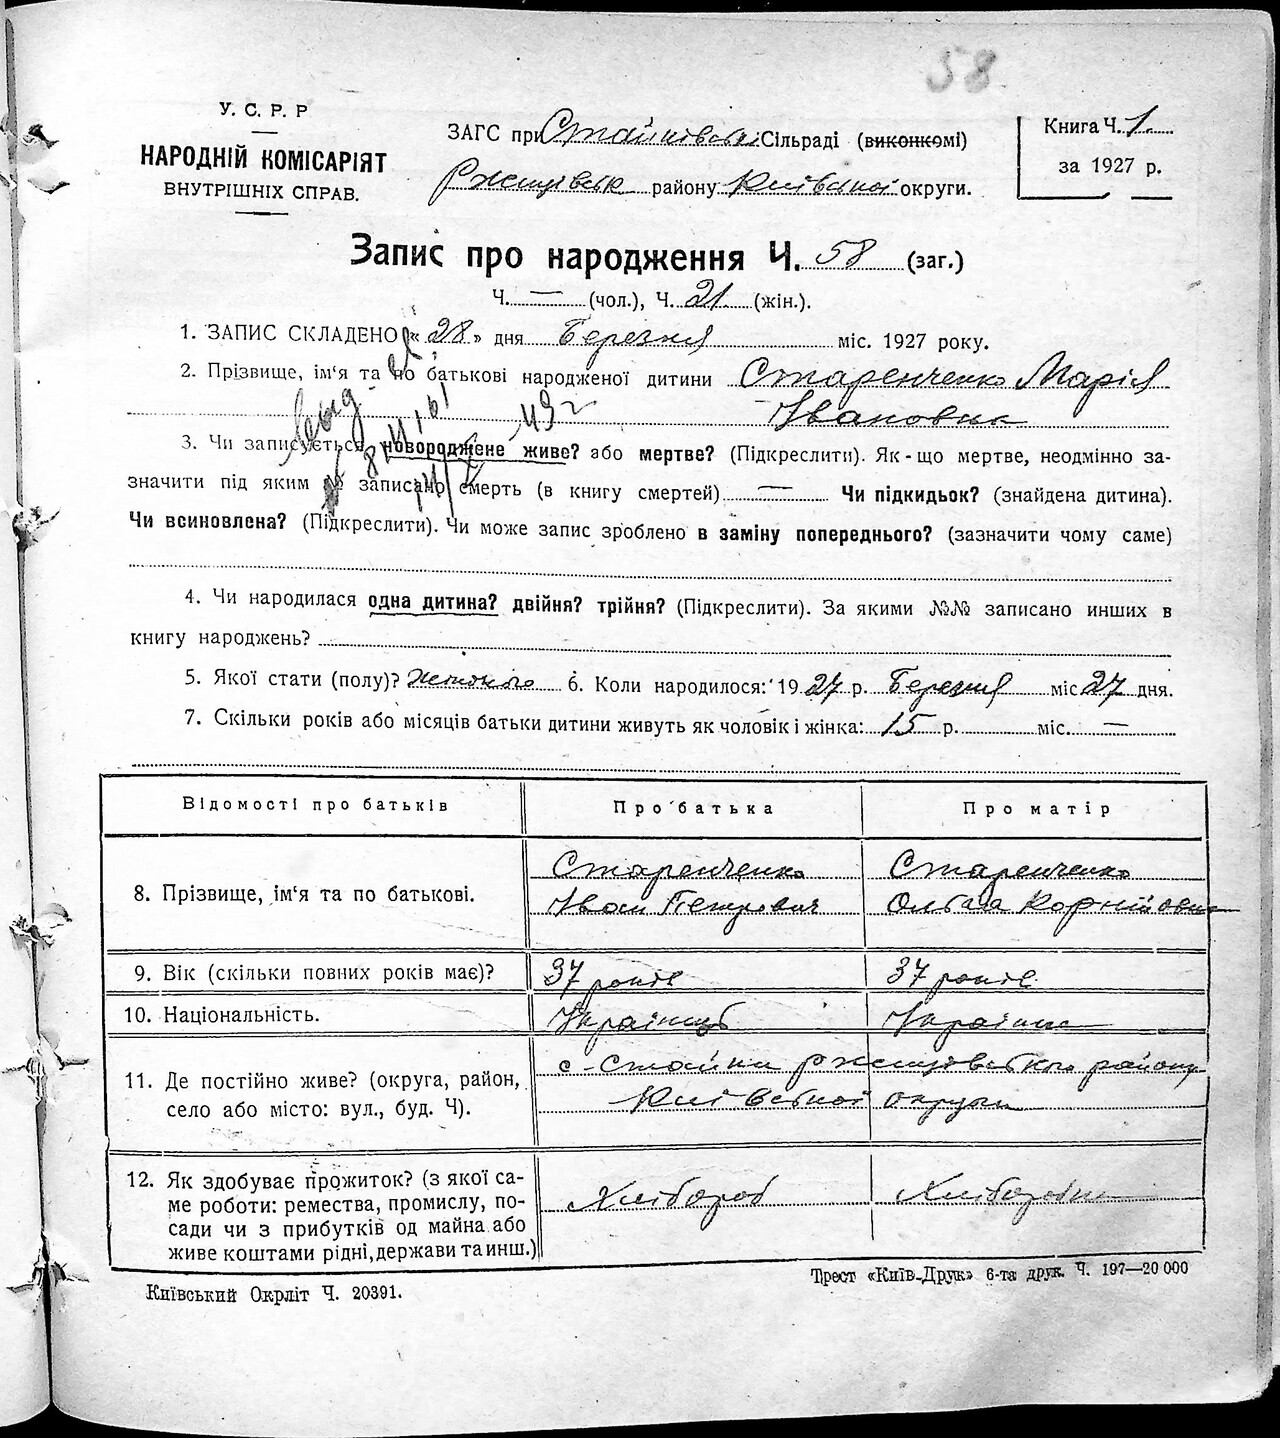 58
У. С. Р. Р
НАРОДНІЙ КОМІСАРІЯТ
ВНУТРІШНІХ СПРАВ.
ЗАГС при Стайківськ. Сільраді (виконкомі)
Ржищівськ району Київської округи.
Книга Ч. 1.
за 1927 р.
Запис про народження Ч. 58 (заг.)
Ч. — (чол.), Ч. 21 (жін.).
1. ЗАПИС СКЛАДЕНО «28» дня Березня міс. 1927 року.
2. Прізвище, ім‘я та по батькові народженої дитини Старенченко Марія
Івановна
3. Чи записується новороджене живе? або мертве? (Підкреслити). Як-що мертве, неодмінно за-
значити під яким № записано смерть (в книгу смертей) — Чи підкидьок? (знайдена дитина).
Чи всиновлена? (Підкреслити). Чи може запис зроблено в заміну попереднього? (зазначити чому саме)
4. Чи народилася одна дитина? двійня? трійня? (Підкреслити). За якими №№ записано инших в
книгу народжень?
5. Якої стати (полу)? жіночого 6. Коли народилося: 1927 р. Березня міс 27 дня.
7. Скільки років або місяців батьки дитини живуть як чоловік і жінка: 15 р. міс. —
Відомості про батьків Про батька Про матір
8. Прізвище, ім‘я та по батькові. Старенченко Старенченко
Іван Петрович Ольга Корніївна
9. Вік (скільки повних років має)? 37 років 37 років
10. Національність. Українець Українка
11. Де постійно живе? (округа, район, село або місто: вул., буд. Ч). с. Стайки Ржищівського району
Київської округи
12. Як здобуває прожиток? (з якої са-
ме роботи: ремества, промислу, по-
сади чи з прибутків од майна або
живе коштами рідні, держави та инш.) Хлібороб Хліборобка
Київський Окрліт Ч. 20391.
Трест «Київ-Друк» 6-та друк. Ч. 197—20 000